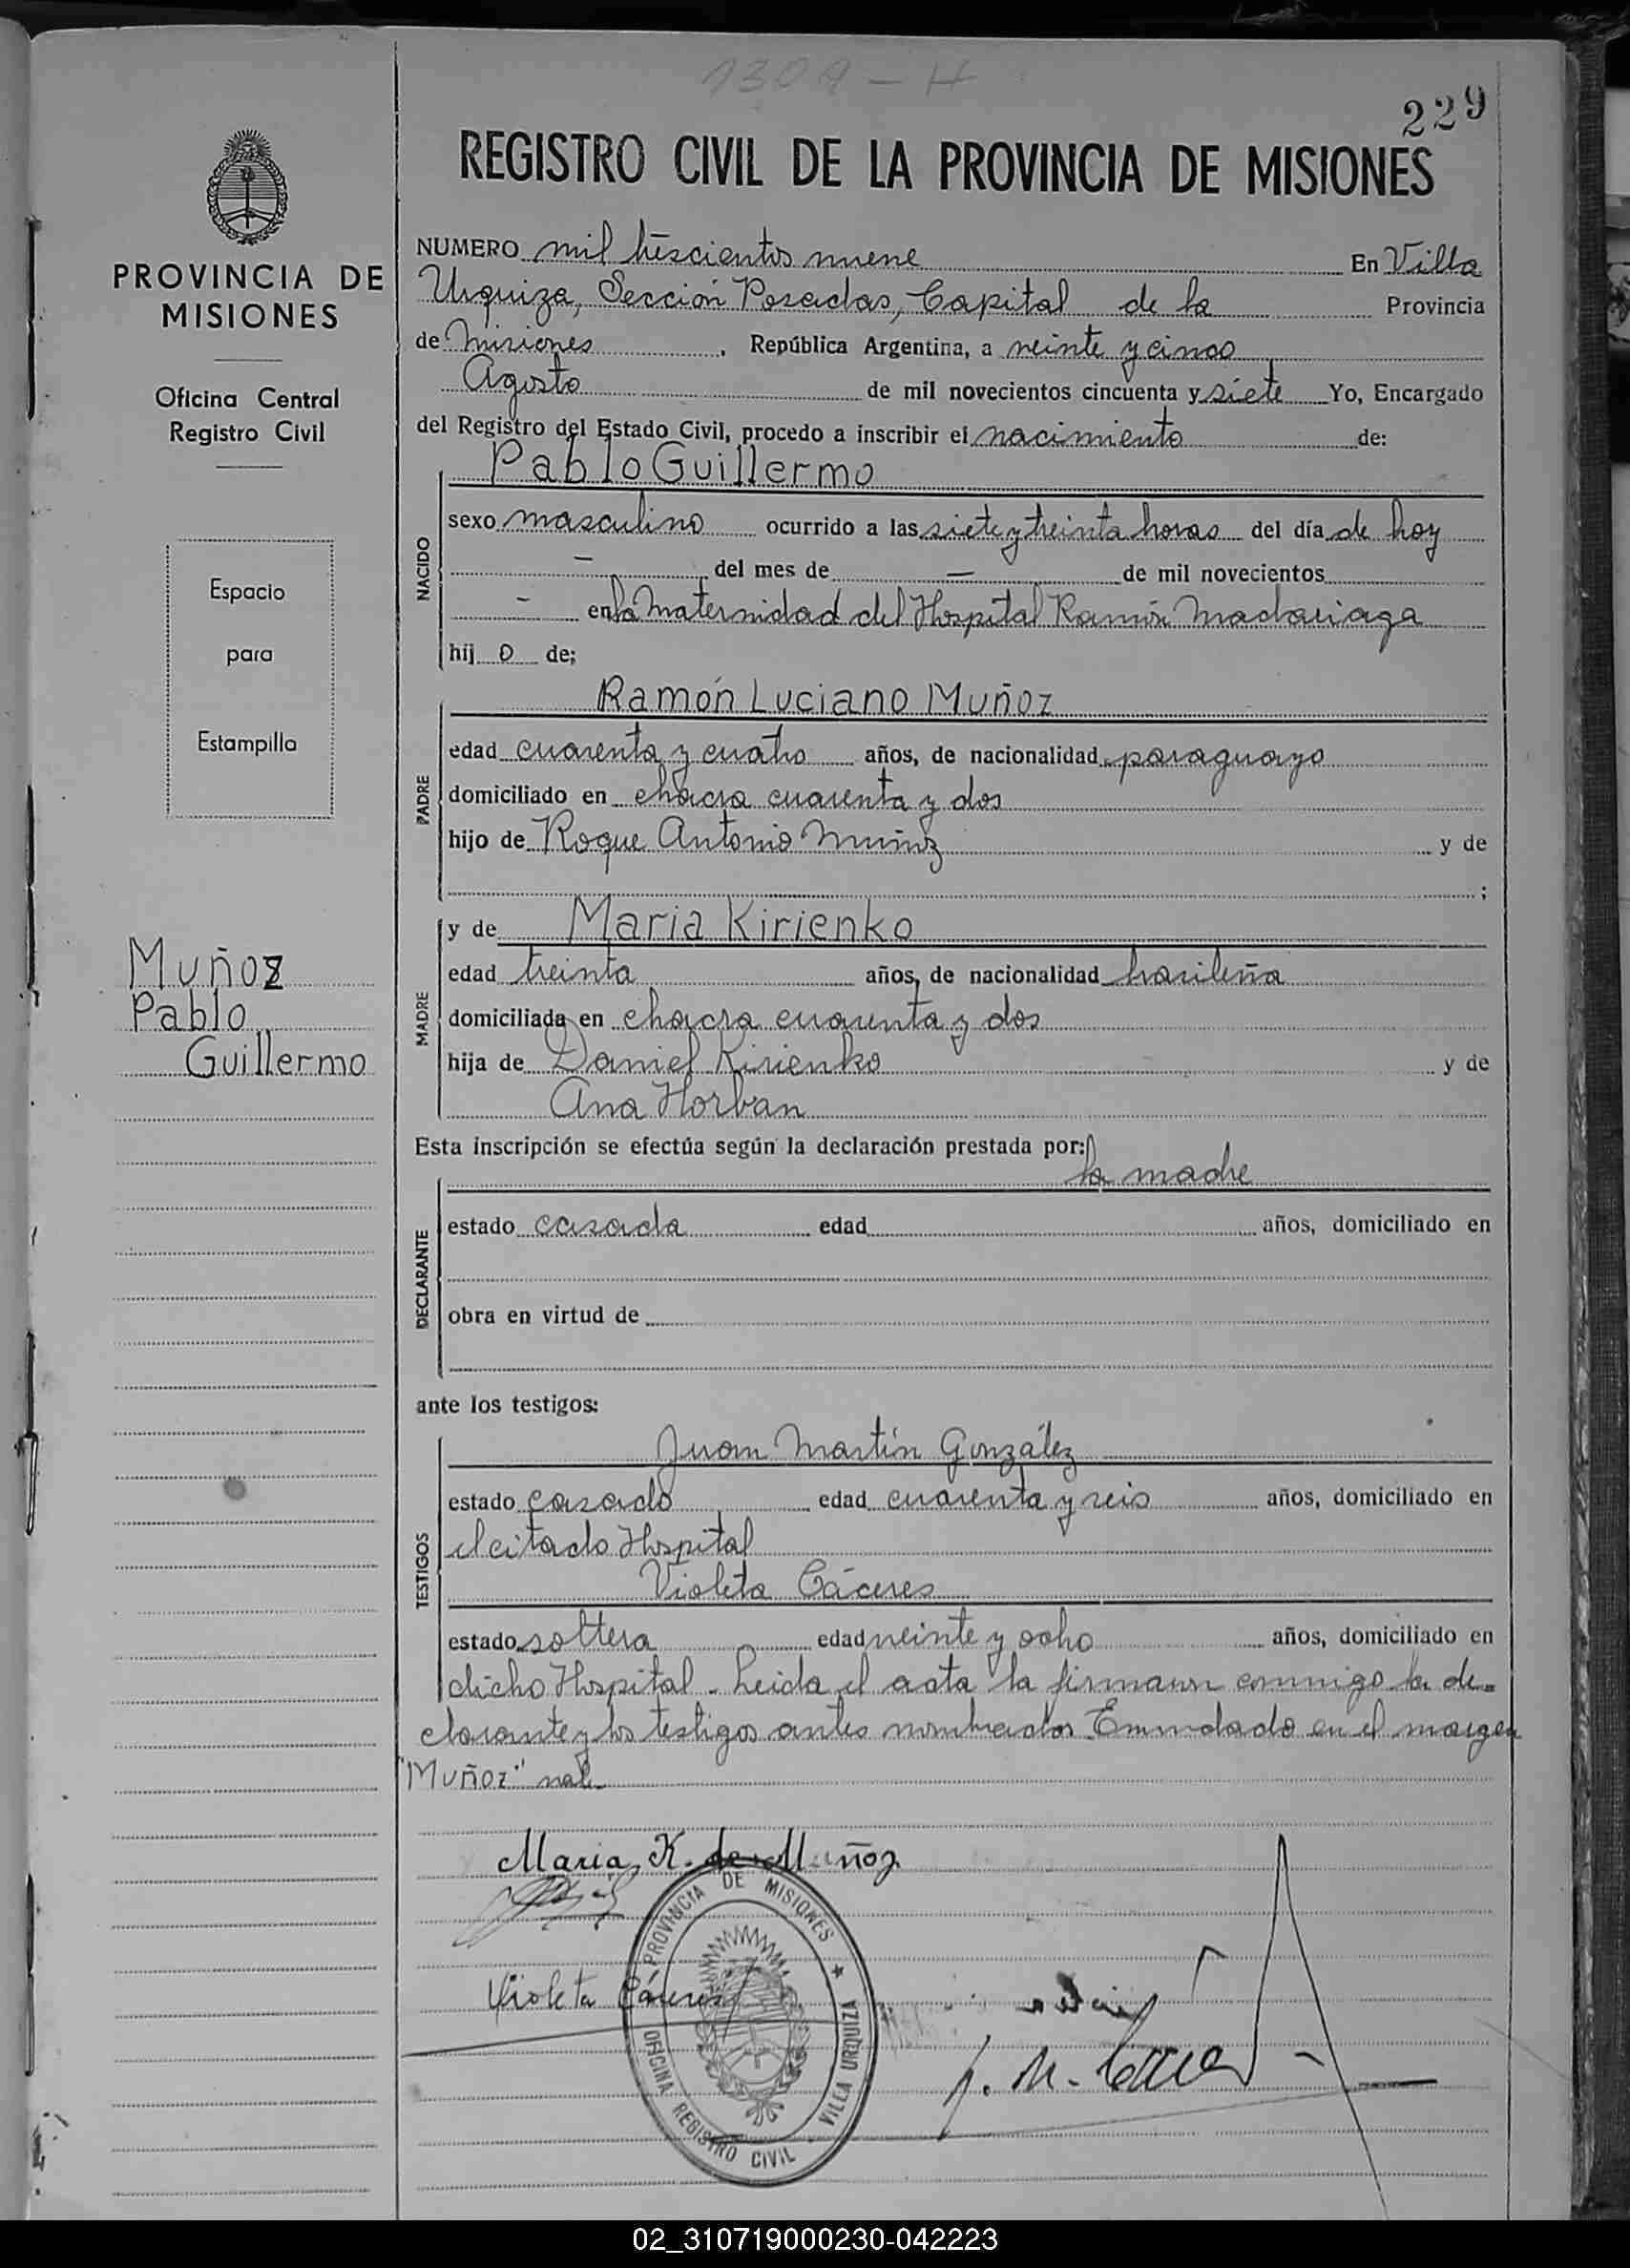 1309 - H
229
REGISTRO CIVIL DE LA PROVINCIA DE MISIONES
PROVINCIA DE
MISIONES
Oficina Central
Registro Civil
Espacio
para
Estampilla
Muñoz
Pablo
Guillermo
NUMERO mil trescientos nueve En Villa
Urquiza, Sección Posadas, Capital de la Provincia
de Misiones, República Argentina, a veinte y cinco
Agosto de mil novecientos cincuenta y siete Yo, Encargado
del Registro del Estado Civil, procedo a inscribir el nacimiento de:
Pablo Guillermo
NACIDO
sexo masculino ocurrido a las siete y treinta horas del día de hoy
- del mes de - de mil novecientos
- en la Maternidad del Hospital Ramón Madariaga
hij o de;
Ramón Luciano Muñoz
PADRE
edad cuarenta y cuatro años, de nacionalidad paraguayo
domiciliado en chacra cuarenta y dos
hijo de Roque Antonio Muñoz y de
;
y de Maria Kirienko
MADRE
edad treinta años, de nacionalidad brasileña
domiciliada en chacra cuarenta y dos
hija de Daniel Kirienko y de
Ana Horban
Esta inscripción se efectúa según la declaración prestada por:
la madre
DECLARANTE
estado casada edad años, domiciliado en
obra en virtud de
ante los testigos:
Juan Martín González
TESTIGOS
estado casado edad cuarenta y seis años, domiciliado en
el citado Hospital
Violeta Cáceres
estado soltera edad veinte y ocho años, domiciliado en
dicho Hospital - Leida el acta la firmaron conmigo la de-
clarante y los testigos antes nombrados. Enmendado en el margen
"Muñoz" vale.
Maria K. de Muñoz
Violeta Cáceres
PROVINCIA DE MISIONES
OFICINA REGISTRO CIVIL - VILLA URQUIZA
02_310719000230-042223